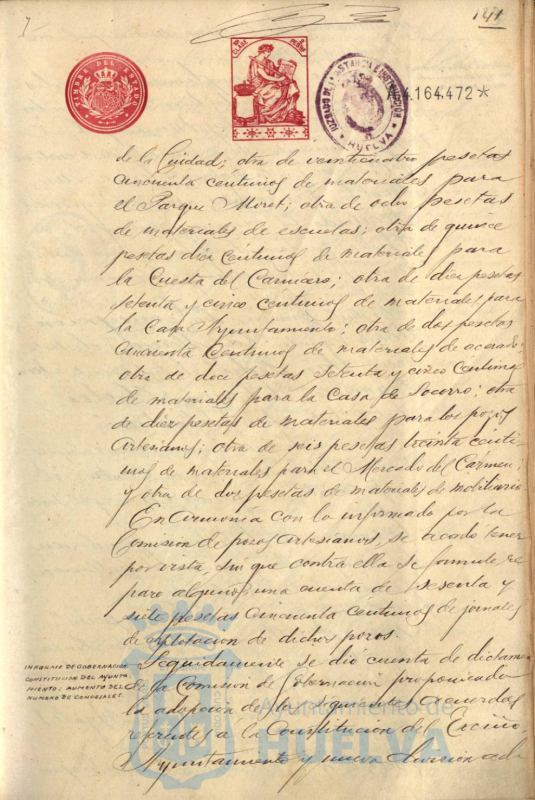 141
TIMBRE DEL ESTADO
10ª CLASE
JUZGADO DE 1ª INSTANCIA E INSTRUCCIÓN
HUELVA
A.4.164.472*
de la Ciudad; otra de veinticuatro pesetas
cincuenta céntimos de materiales para
el Parque Moret; otra de ocho pesetas
de materiales de escuelas; otra de quince
pesetas diez céntimos de materiales para
la Cuesta del Carnicero; otra de diez pesetas
setenta y cinco centimos de materiales para
la Casa Ayuntamiento; otra de dos pesetas
cincuenta céntimos de materiales de acerado;
otra de doce pesetas setenta y cinco centimos
de materiales para la Casa de Socorro; otra
de diez pesetas de materiales para los pozos
Artesianos; otra de seis pesetas treinta centi-
mos de materiales para el Mercado del Cármen;
y otra de dos pesetas de materiales de mobiliario
En armonía con lo informado por la
Comision de pozos Artesianos, se acordó tener
por vista, sin que contra ella se formule re
paro alguno, una cuenta de sesenta y
siete pesetas cincuenta centimos de jornales
de esplotacion de dichos pozos.
INFORME DE GOBERNACION
CONSTITUCION DEL AYUNTA
MIENTO: AUMENTO DEL
NUMERO DE CONCEJALES.
Seguidamente se dió cuenta de dictamen
de la Comisión de Gobernacion proponiendo
la adopcion de los siguientes acuerdos
referentes a la Constitución del Excmo.
Ayuntamiento y nueva division del
Ayuntamiento de
HUELVA